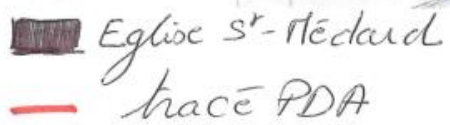 Eglise St-Médard
tracé PDA